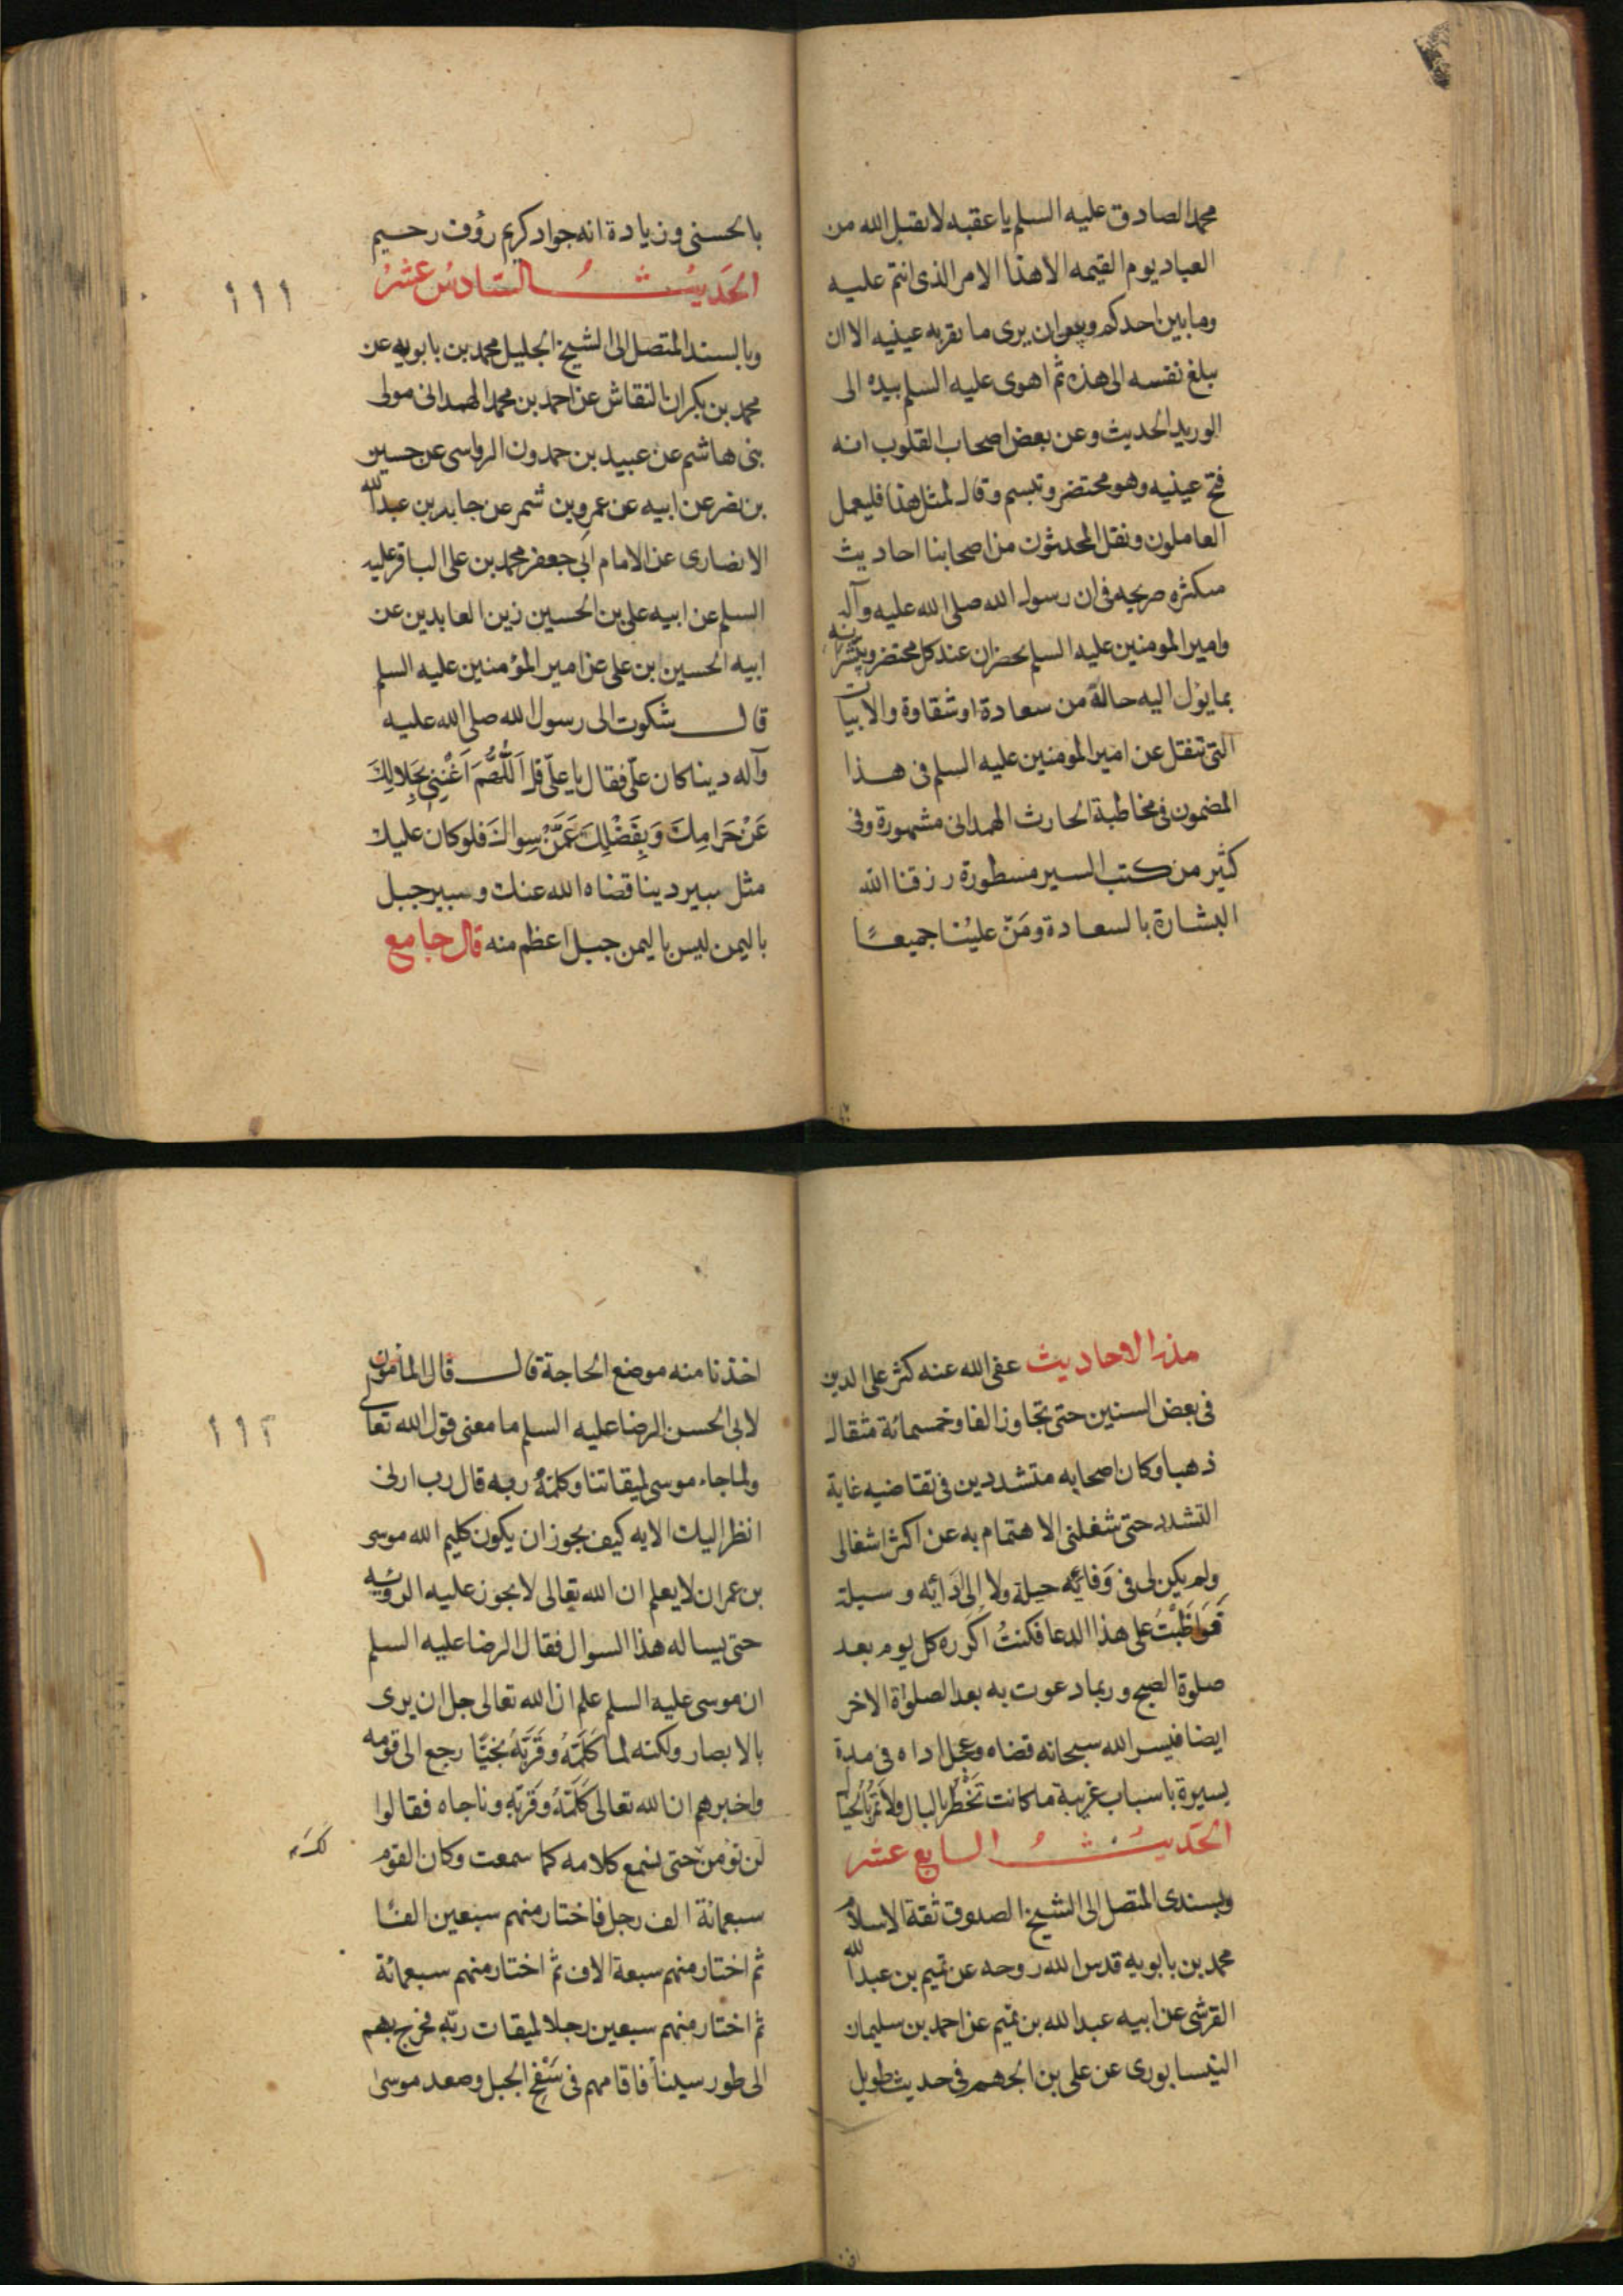 محمد الصادق عليه السلم يا عقبه لا يقبل الله من
العباد يوم القيمه الا هذا الامر الذى انتم عليه
وما بين احدكم وبين ان يرى ما تقر به عينيه الا ان
يبلغ نفسه الى هذه ثم اهوى عليه السلم بيده الى
الوريد الحديث وعن بعض اصحاب القلوب انه
فتح عينيه وهو محتضر وتبسم وقال لمثل هذا فليعمل
العاملون ونقل المحدثون من اصحابنا احاديث
متكثره صريحه فى ان رسول الله صلى الله عليه وآله
وامير المومنين عليه السلم يحضران عند كل محتضر ويبشرانه
بما يؤل اليه حالة من سعادة او شقاوة والابيات
التى تنقل عن امير المومنين عليه السلم فى هذا
المضمون فى مخاطبة الحارث الهمدانى مشهورة وفى
كثير من كتب السير مسطورة رزقنا الله
البشارة بالسعادة ومَنّ علينا جميعًا
بالحسنى وزيادة انه جواد كريم رؤف رحيم
الحَديثُ السَّادسُ عشرُ
١١١
وبالسند المتصل الى الشيخ الجليل محمد بن بابويه عن
محمد بن بكران النقاش عن احمد بن محمد الهمدانى مولى
بنى هاشم عن عبيد بن حمدون الرواسى عن حسين
بن نصر عن ابيه عن عمرو بن شمر عن جابر بن عبد الله
الانصارى عن الامام ابى جعفر محمد بن على الباقر عليه
السلم عن ابيه على بن الحسين زين العابدين عن
ابيه الحسين ابن على عن امير المؤمنين عليه السلم
قال شكوت الى رسول الله صلى الله عليه
وآله دينا كان علىّ فقال يا علىّ قل اَللّهُمَّ اَغْنِنِى بِحَلالِكَ
عَنْ حَرَامِكَ وَبِفَضْلِكَ عَمَّنْ سِواكَ فلو كان عليك
مثل سبير دينا قضاه الله عنك وسبير جبل
باليمن ليس باليمن جبل اعظم منه قال جامع
هذه الاحاديث عفى الله عنه كثر على الدين
فى بعض السنين حتى تجاوز الفا وخمسمائة مثقال
ذهبا وكان اصحابه متشددين فى تقاضيه غاية
التشدد حتى شغلنى الاهتمام به عن اكثر اشغالى
ولم يكن لى فى وَفائِه حيلة ولا اِلى اَدَائِه وسيلة
فَوَاظَبْتُ على هذا الدعا فكنتُ اكَرره كل يوم بعد
صلوة الصبح وربما دعوت به بعد الصلواة الاخر
ايضا فيسر الله سبحانه قضاه وعجل اداه فى مدة
يسيرة باسباب غريبة ما كانت تَخْطُر بالبال ولا تمر بالخيال
الحَديثُ السابع عشر
وبسندى المتصل الى الشيخ الصدوق ثقة الاسلام
محمد بن بابويه قدس الله روحه عن تميم بن عبد الله
القرشى عن ابيه عبد الله بن تميم عن احمد بن سليمان
النيسابورى عن على بن الجهم فى حديث طويل
اخذنا منه موضع الحاجة قال قال المأمون
١١٢
لابى الحسن الرضا عليه السلم ما معنى قول الله تعالى
ولما جاء موسى لميقاتنا وكلمهُ ربه قال رب ارنى
انظر اليك الايه كيف يجوز ان يكون كليم الله موسى
بن عمران لا يعلم ان الله تعالى لا يجوز عليه الروئيه
حتى يساله هذا السوال فقال الرضا عليه السلم
ان موسى عليه السلم علم ان الله تعالى جل ان يرى
بالابصار ولكنه لما كَلَمَهُ وقَرَّبَهُ نجيًّا رجع الى قومه
واخبرهم ان الله تعالى كَلَمَّهُ وقَرَبَّهِ وناجاه فقالوا
لن نؤمن حتى نسمع كلامه كما سمعت وكان القوم
سبعمائة الف رجل فاختار منهم سبعين الفًا
ثم اختار منهم سبعة الاف ثم اختار منهم سبعمائة
ثم اختار منهم سبعين رجلا لميقات ربّه فخرج بهم
الى طور سيناً فاقامهم فى سَفْحِ الجبل وصعد موسىٰ